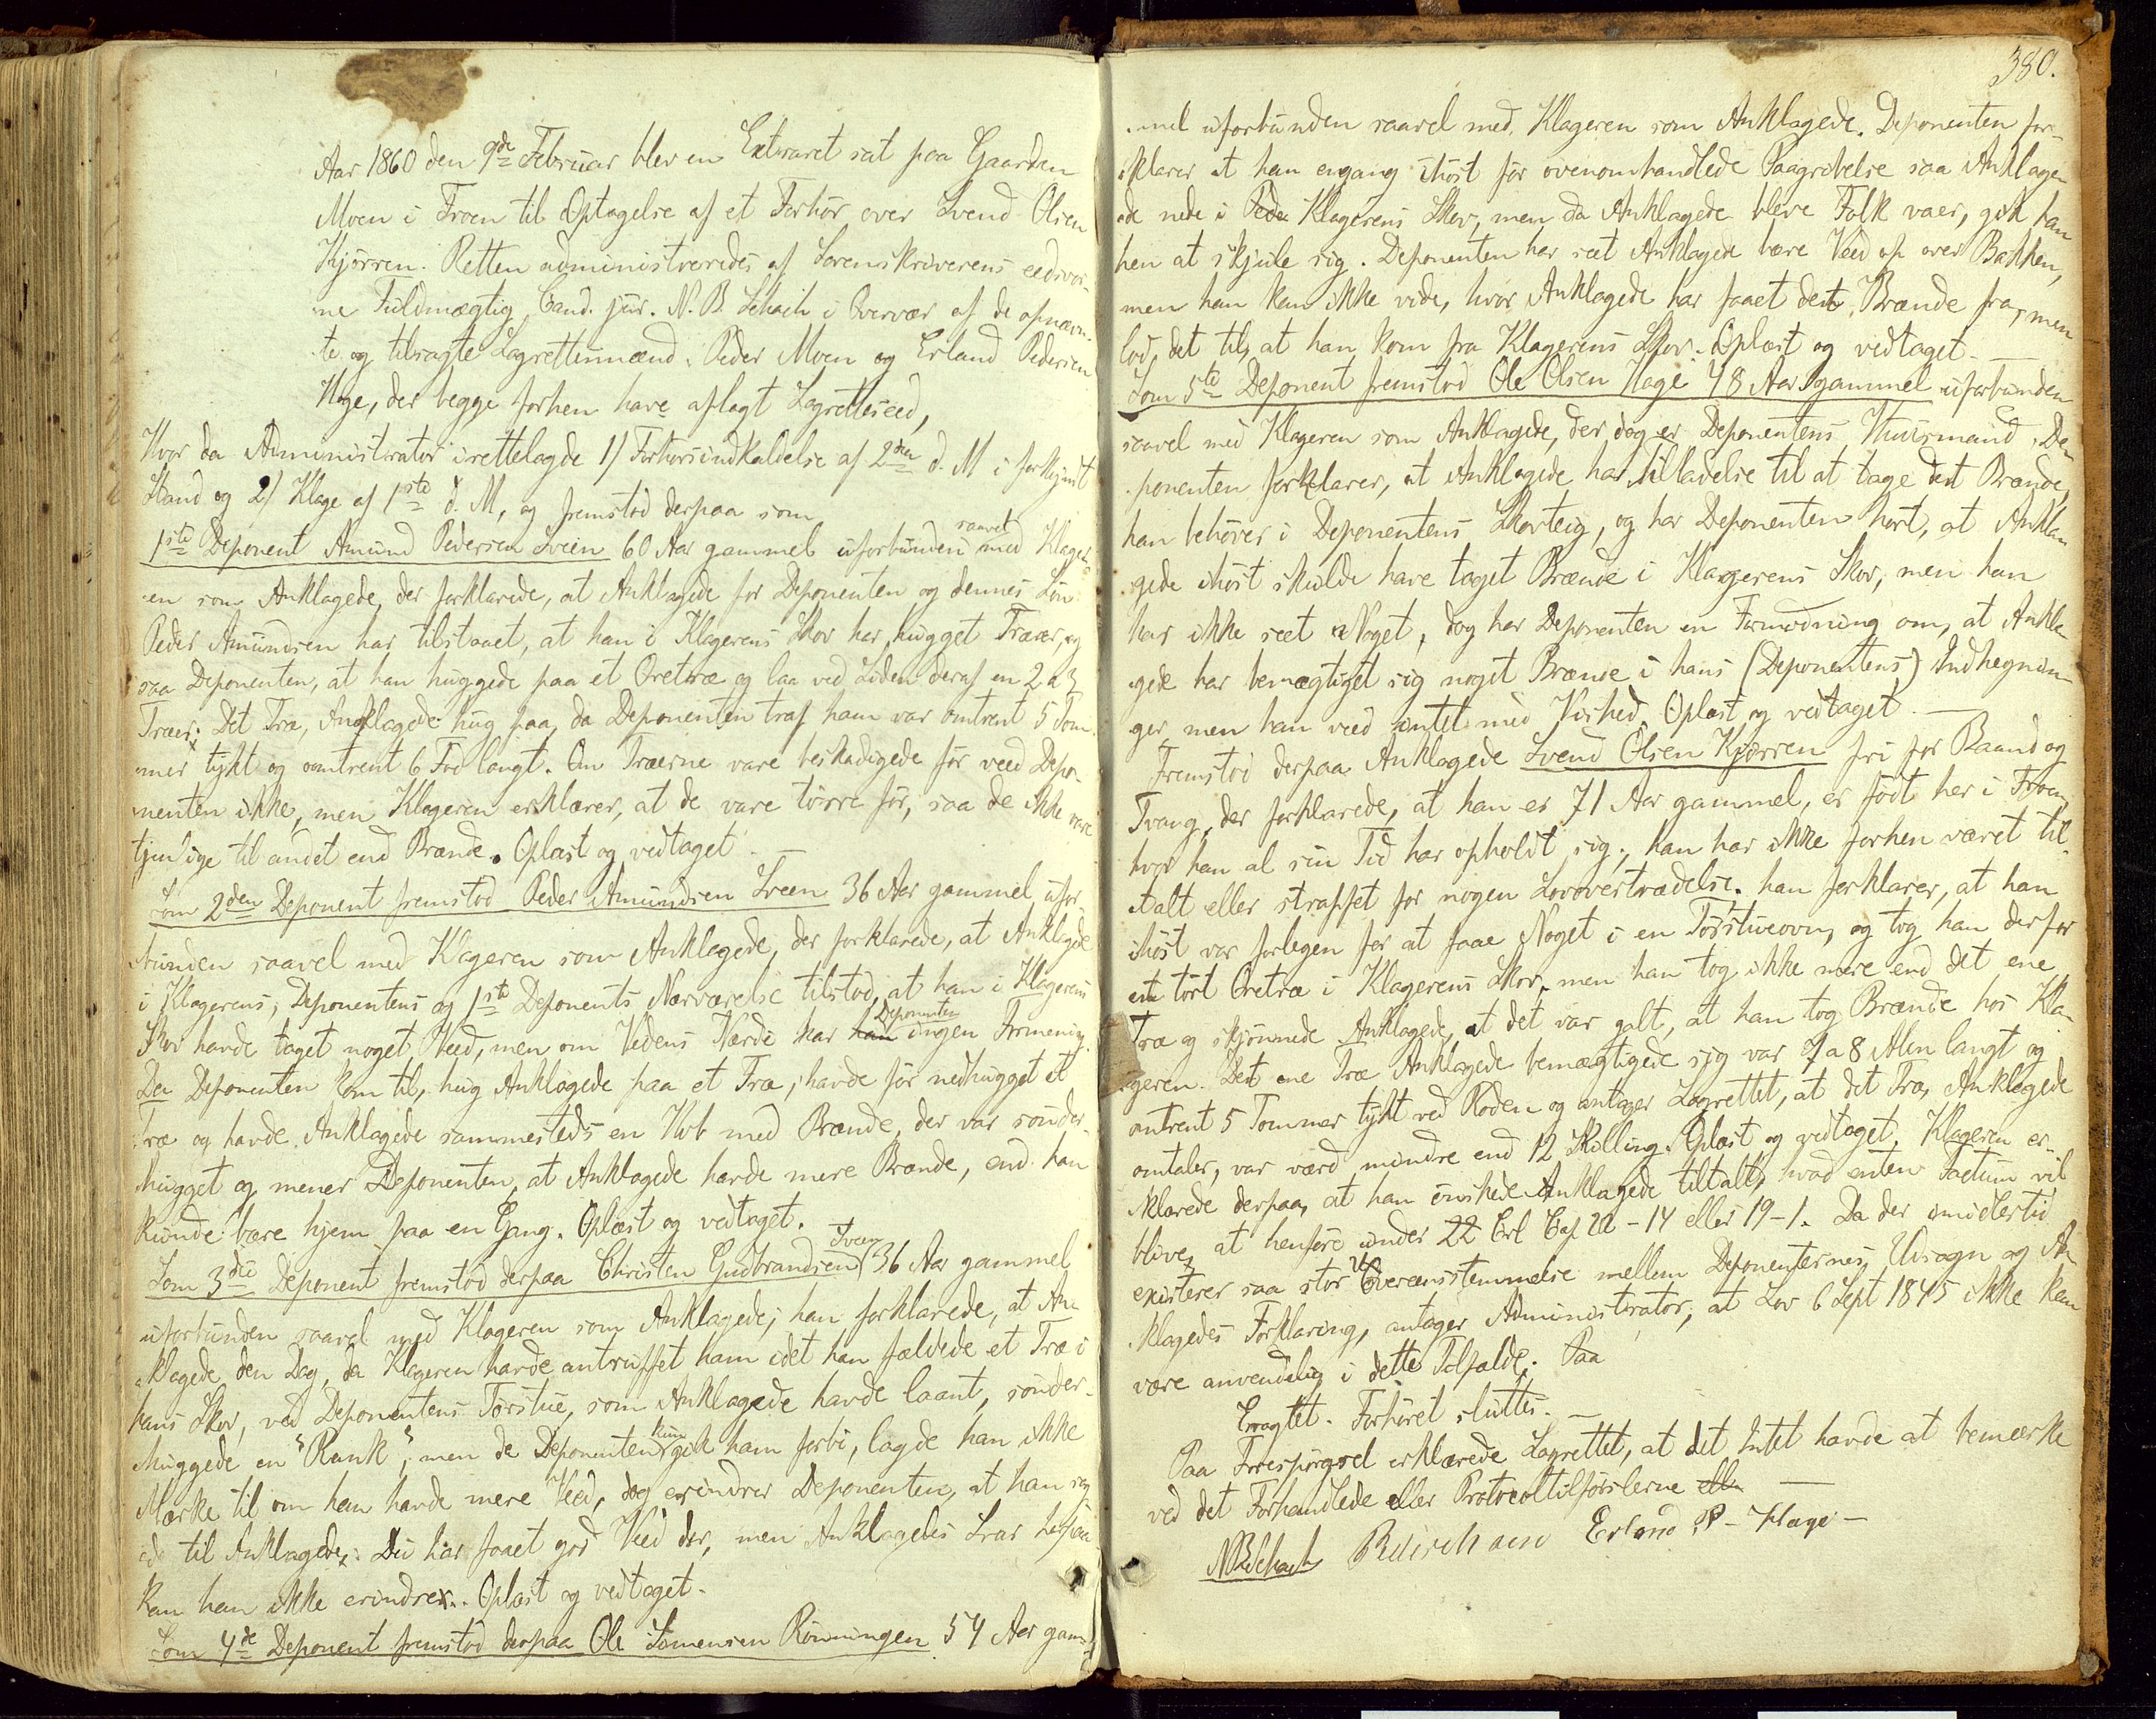 Aar 1860 den 9de Februar blev en Extraret sat paa Gaarden
Moen i Froen til Optagelse af et Forhør over Svend Olsen
Kjørren. Retten administreredes af Sorenskriverens eedsvor-
ne Fuldmægtig, Cand. jur. N. B. Schach i Overvær af de opnævn-
te og tilsagte Lagrettesmænd: Peder Moen og Erland Pedersen
Hage, der begge forhen have aflagt Lagretteseed,
Hvor da Administrator irettelagde 1/ Forhørsindkaldelse af 2den d. M i forkyndt
Stand og 2/ Klage af 1ste d. M, og fremstod derpaa som
1ste Deponent Amund Pedersen Sveen 60 Aar gammel uforbunden saavel med Klager-
en som Anklagede, der forklarede, at Anklagede for Deponenten og dennes Søn
Peder Amundsen har tilstaaet, at han i Klagerens Skov har hugget Træer, og
saa Deponenten, at han huggede paa et Oretræ og laa ved Siden deraf en 2 a 3
Træer; Det Træ, Anklagede hug paa, da Deponenten traf ham var omtrent 5 Tom-
mer tykt og omtrent 6 Fod langt. Om Træerne vare beskadigede før veed Depo-
nenten ikke, men Klageren erklærer, at de vare tørre før, saa de ikke vare
tjenlige til andet end Brænde. Oplæst og vedtaget. —
Som 2den Deponent fremstod Peder Amundsen Sveen 36 Aar gammel ufor-
bunden saavel med Klageren som Anklagede, der forklarede, at Anklagede
i Klagerens, Deponentens og 1ste Deponents Nærværelse tilstod, at han i Klagerens
Skov havde taget noget Veed, men om Vedens Værdi har han Deponenten ingen Formening.
Da Deponenten kom til, hug Anklagede paa et Træ, havde før nedhugget et
Træ og havde Anklagede sammesteds en Kov med Brænde, der var sønder-
hugget og mener Deponenten, at Anklagede havde mere Brænde, end han
kunde bære hjem paa en Gang. Oplæst og vedtaget.
Som 3die Deponent fremstod derpaa Christen Gudbrandsen Sveen 36 Aar gammel
uforbunden saavel med Klageren som Anklagede; han forklarede, at An-
klagede den Dag, da Klageren havde antruffet ham idet han fældede et Træ i
hans Skov, ved Deponentens Tørstue, som Anklagede havde laant, sønder-
huggede en "Rank", men da Deponenten kun gik ham forbi, lagde han ikke
Mærke til om han havde mere Veed, dog erindrer Deponenten, at han sag-
de til Anklagede: Du har faaet god Veed der, men Anklagedes Svar herpaa
kan han ikke erindre. Oplæst og vedtaget.
Som 4de Deponent fremstod derpaa Ole Simensen Rønningen 54 Aar gam-
380.
mel uforbunden saavel med Klageren som Anklagede. Deponenten for-
klarer at han engang ihøst før ovenomhandlede Paagribelse saa Anklage-
de nede i Klagerens Skov, men da Anklagede blev Folk vaer, gik han
hen at skjule sig. Deponenten har seet Anklagede bære Veed op over Bakken,
men han kan ikke vide, hvor Anklagede har faaet det Brænde fra, men
lod det til, at han kom fra Klagerens Skov. Oplæst og vedtaget. —
Som 5te Deponent fremstod Ole Olsen Hage 48 Aar gammel uforbunden
saavel med Klageren som Anklagede, der dog er Deponentens Huusmand. De-
ponenten forklarer, at Anklagede har Tilladelse til at tage det Brænde,
han behøver i Deponentens Skovteig, og har Deponenten hørt, at Ankla-
gede ihøst skulde have taget Brænde i Klagerens Skov, men han
har ikke seet Noget, dog har Deponenten en Formodning om, at Ankla-
gede har bemægtiget sig noget Brænde i hans (Deponentens) Indhegnin-
ger, men han veed intet med Vished. Oplæst og vedtaget. —
Fremstod derpaa Anklagede Svend Olsen Kjørren fri for Baand og
Tvang, der forklarede, at han er 71 Aar gammel, er født her i Froen,
hvor han al sin Tid har opholdt sig; han har ikke forhen været til-
talt eller straffet for nogen Lovovertrædelse. han forklarer, at han
ihøst var forlegen for at faae Noget i en Tørstueovn, og tog han derfor
et tørt Oretræ i Klagerens Skov, men han tog ikke mere end det ene
Træ og skjønnede Anklagede, at det var galt, at han tog Brænde hos Kla-
geren. Det ene Træ Anklagede bemægtigede sig var 7 a 8 Alen langt og
omtrent 5 Tommer tykt ved Roden og antager Lagrettet, at det Træ, Anklagede
omtaler, var værd mindre end 12 Skilling. Oplæst og vedtaget. Klageren er-
klærede derpaa, at han ønskede Anklagede tiltalt, hvad enten Factum vil
blive at henføre under 22 Crl Cap 22 - 14 eller 19-1. Da der imidlertid
existerer saa stor Uovereensstemmelse mellem Deponenternes Udsagn og An-
klagedes Forklaring, antager Administrator, at Lov 6 Sept 1845 ikke kan
være anvendelig i dette Tilfælde. Paa
Eragtet. Forhøret sluttes. —
Paa Forespørgsel erklærede Lagrettet, at det Intet havde at bemærke
ved det Forhandlede eller Protocoltilførslerne —
NBSchach Erland P - Hage -